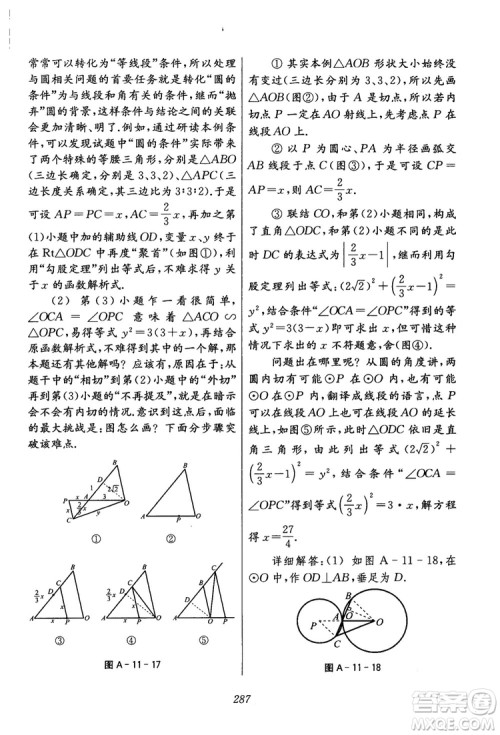 常常可以转化为“等线段”条件,所以处理
与圆相关问题的首要任务就是转化“圆的
条件”为与线段和角有关的条件,然后“抛
弃”圆的背景,这样条件与结论之间的关联
会更加清晰.再多次尝试去“圆的条件”,你
会发现两个特殊的等腰三角形,△ABO
(三边长确定,分别为3、3、2),△APC(三边
长度关系确定,三边长之比为3∶3∶2).于是
可设 AP=PC=x,有 AC=2/3x,再由第
(1)小题中的辅助线OD,变量x、y终于
在Rt△ODC中再度“聚首”(如图①),利
用勾股定理列出等式后,不难求得y关
于x的函数解析式.
(2) 第(3)小题乍一看很简单,
∠OCA=∠OPC 意味着△OCA∽
△OPC,易得等式 y²=3(3+x),结合
原函数解析式,不难得到其中的一个解,那
本题还有其他解吗?应该有,原因在于从
题干中的“相切”到第(2)小题的“外切”再
到第(3)小题的“不再提及”,这就意味着可
能会有内切的可能.意识到这点后,面临的
最大挑战是:图怎么画?下面分步骤突
破该难点.
图A-11-17
① 其实本例△AOB形状大小一直
没变过(三边长分别为3、3、2),所以先画
△AOB(图②),由于点P是内切圆圆心且
切点A在AO射线上,先考虑点P在
线段AO上.
② 以P为圆心、PA为半径画弧交
AB于点C(图③),此时仍然有CP=
AP=x,AC=2/3x.
③ 联结CO,和第(2)小题相同,构
成了直角△ODC,与外切有所不同的是此
时DC的表达式为|2/3x-1|,继而利用勾
股定理列出等式(2√2)²+(2/3x-1)²=
y²,结合条件“∠OCA=∠OPC”得到的等
式y²=3(3-x),可以求得x,但可惜这种
情况下求出x=0(图④).
问题出在哪里呢?从圆的角度讲,两
圆内切有可能⊙P在⊙O内,也有可能
⊙O在⊙P内,翻译成线段的语言:点P有
可能在线段AO上,也有可能在线段AO的
延长线上.如图⑤的情况下,△ODC依然是
直角三角形,由此列出等式(2√2)²+
(2/3x-1)²=y²,结合条件“∠OCA=
∠OPC”得到等式(2/3x)²=3·x,解方程
得x=27/4.
详细解答:(1) 如图A-11-18,
在⊙O中,作OD⊥AB,垂足为D.
图A-11-18
287